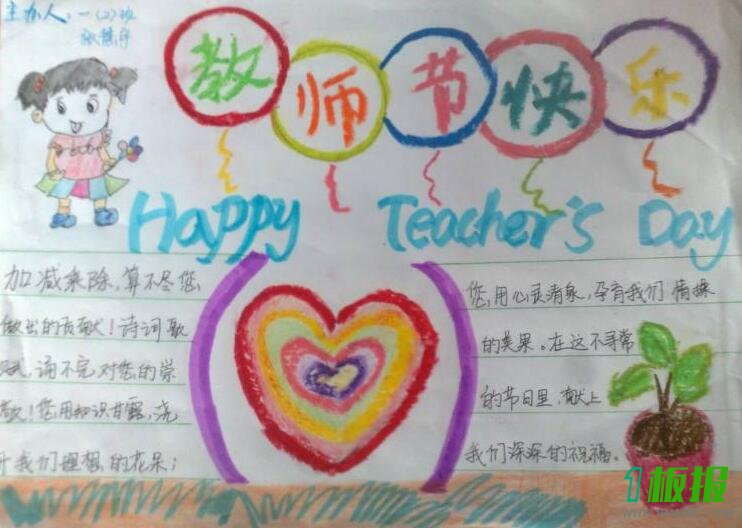 主办人：一(2)班
教师节快乐
Happy Teacher's Day
加减乘除，算不尽您
做出的贡献！诗词歌
赋，诵不完对您的崇
敬！您用知识甘露，浇
开我们理想的花朵；
您，用心灵清泉，孕育我们情操
的美果。在这不寻常
的节日里，献上
我们深深的祝福。
1板报